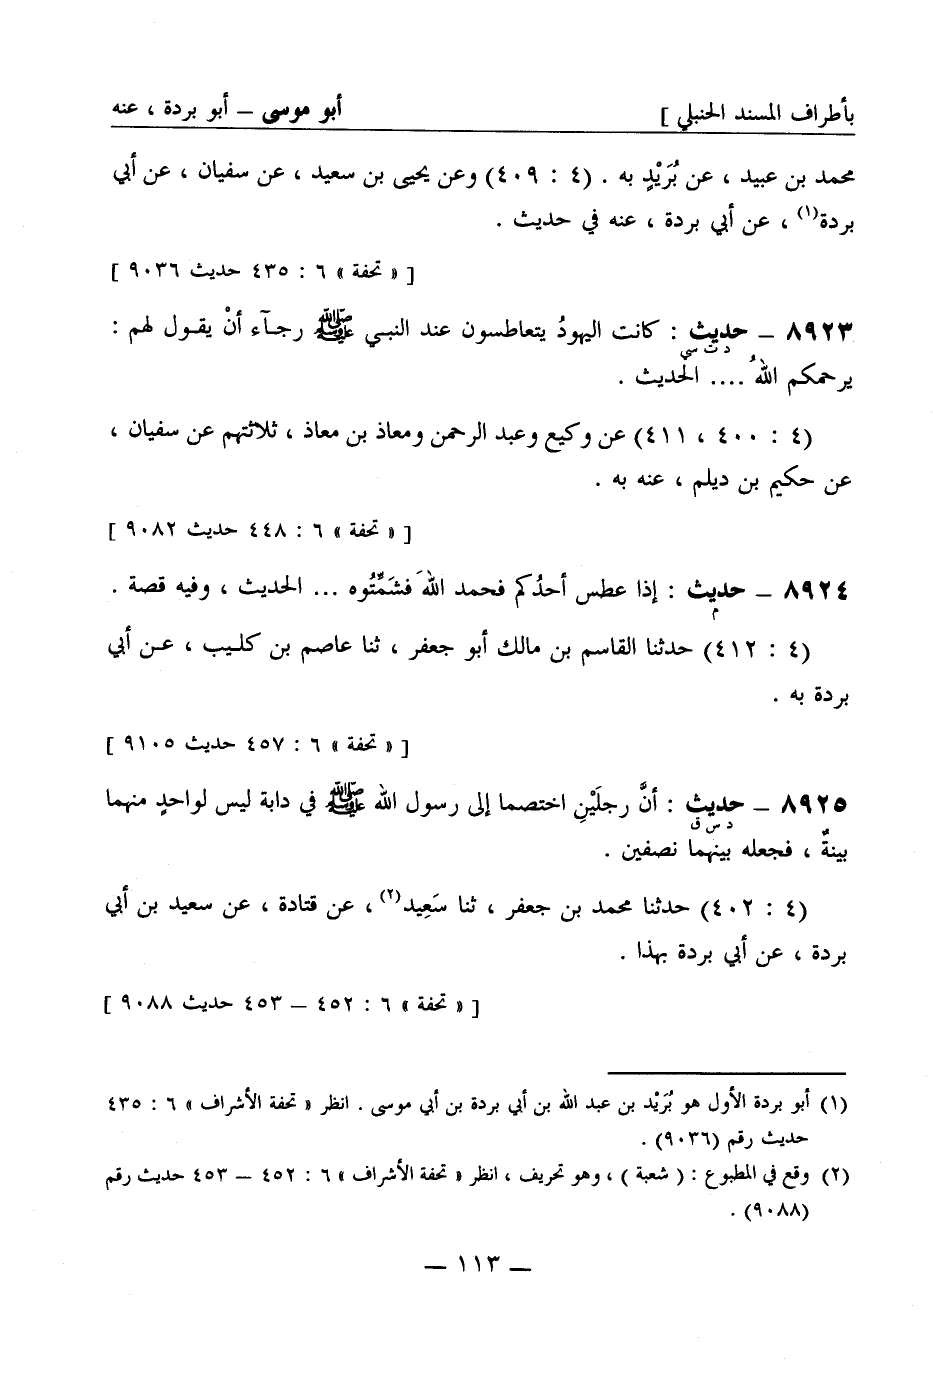 بأطراف المسند الحنبلي ] أبو موسى ــ أبو بردة ، عنه
محمد بن عبيد ، عن بُرَيْدٍ به . (٤ : ٤٠٩) وعن يحيى بن سعيد ، عن سفيان ، عن أبي
بردة(١) ، عن أبي بردة ، عنه في حديث .
[ « تحفة » ٦ : ٤٣٥ حديث ٩٠٣٦ ]
٨٩٢٣ ــ حديث : كانت اليهودُ يتعاطسون عند النبي ﷺ رجـآء أنْ يقـول لهم :
د ت سي
يرحمكم اللهُ .... الحديث .
(٤ : ٤٠٠ ، ٤١١) عن وكيع وعبد الرحمن ومعاذ بن معاذ ، ثلاثتهم عن سفيان ،
عن حكيم بن ديلم ، عنه به .
[ « تحفة » ٦ : ٤٤٨ حديث ٩٠٨٢ ]
٨٩٢٤ ــ حديث : إذا عطس أحدُكم فحمد اللهَ فشَمِّتُوه ... الحديث ، وفيه قصة .
م
(٤ : ٤١٢) حدثنا القاسم بن مالك أبو جعفر ، ثنا عاصم بن كلـيب ، عـن أبي
بردة به .
[ « تحفة » ٦ : ٤٥٧ حديث ٩١٠٥ ]
٨٩٢٥ ــ حديث : أنَّ رجلَيْنِ اختصما إلى رسول الله ﷺ في دابة ليس لواحدٍ منهما
د س ق
بينةٌ ، فجعله بينهما نصفين .
(٤ : ٤٠٢) حدثنا محمد بن جعفر ، ثنا سَعِيد(٢) ، عن قتادة ، عن سعيد بن أبي
بردة ، عن أبي بردة بهذا .
[ « تحفة » ٦ : ٤٥٢ ــ ٤٥٣ حديث ٩٠٨٨ ]
(١) أبو بردة الأول هو بُرَيْد بن عبد الله بن أبي بردة بن أبي موسى . انظر « تحفة الأشراف » ٦ : ٤٣٥
حديث رقم (٩٠٣٦) .
(٢) وقع في المطبوع : ( شعبة ) ، وهو تحريف ، انظر « تحفة الأشراف » ٦ : ٤٥٢ ــ ٤٥٣ حديث رقم
(٩٠٨٨) .
ــ ١١٣ ــ